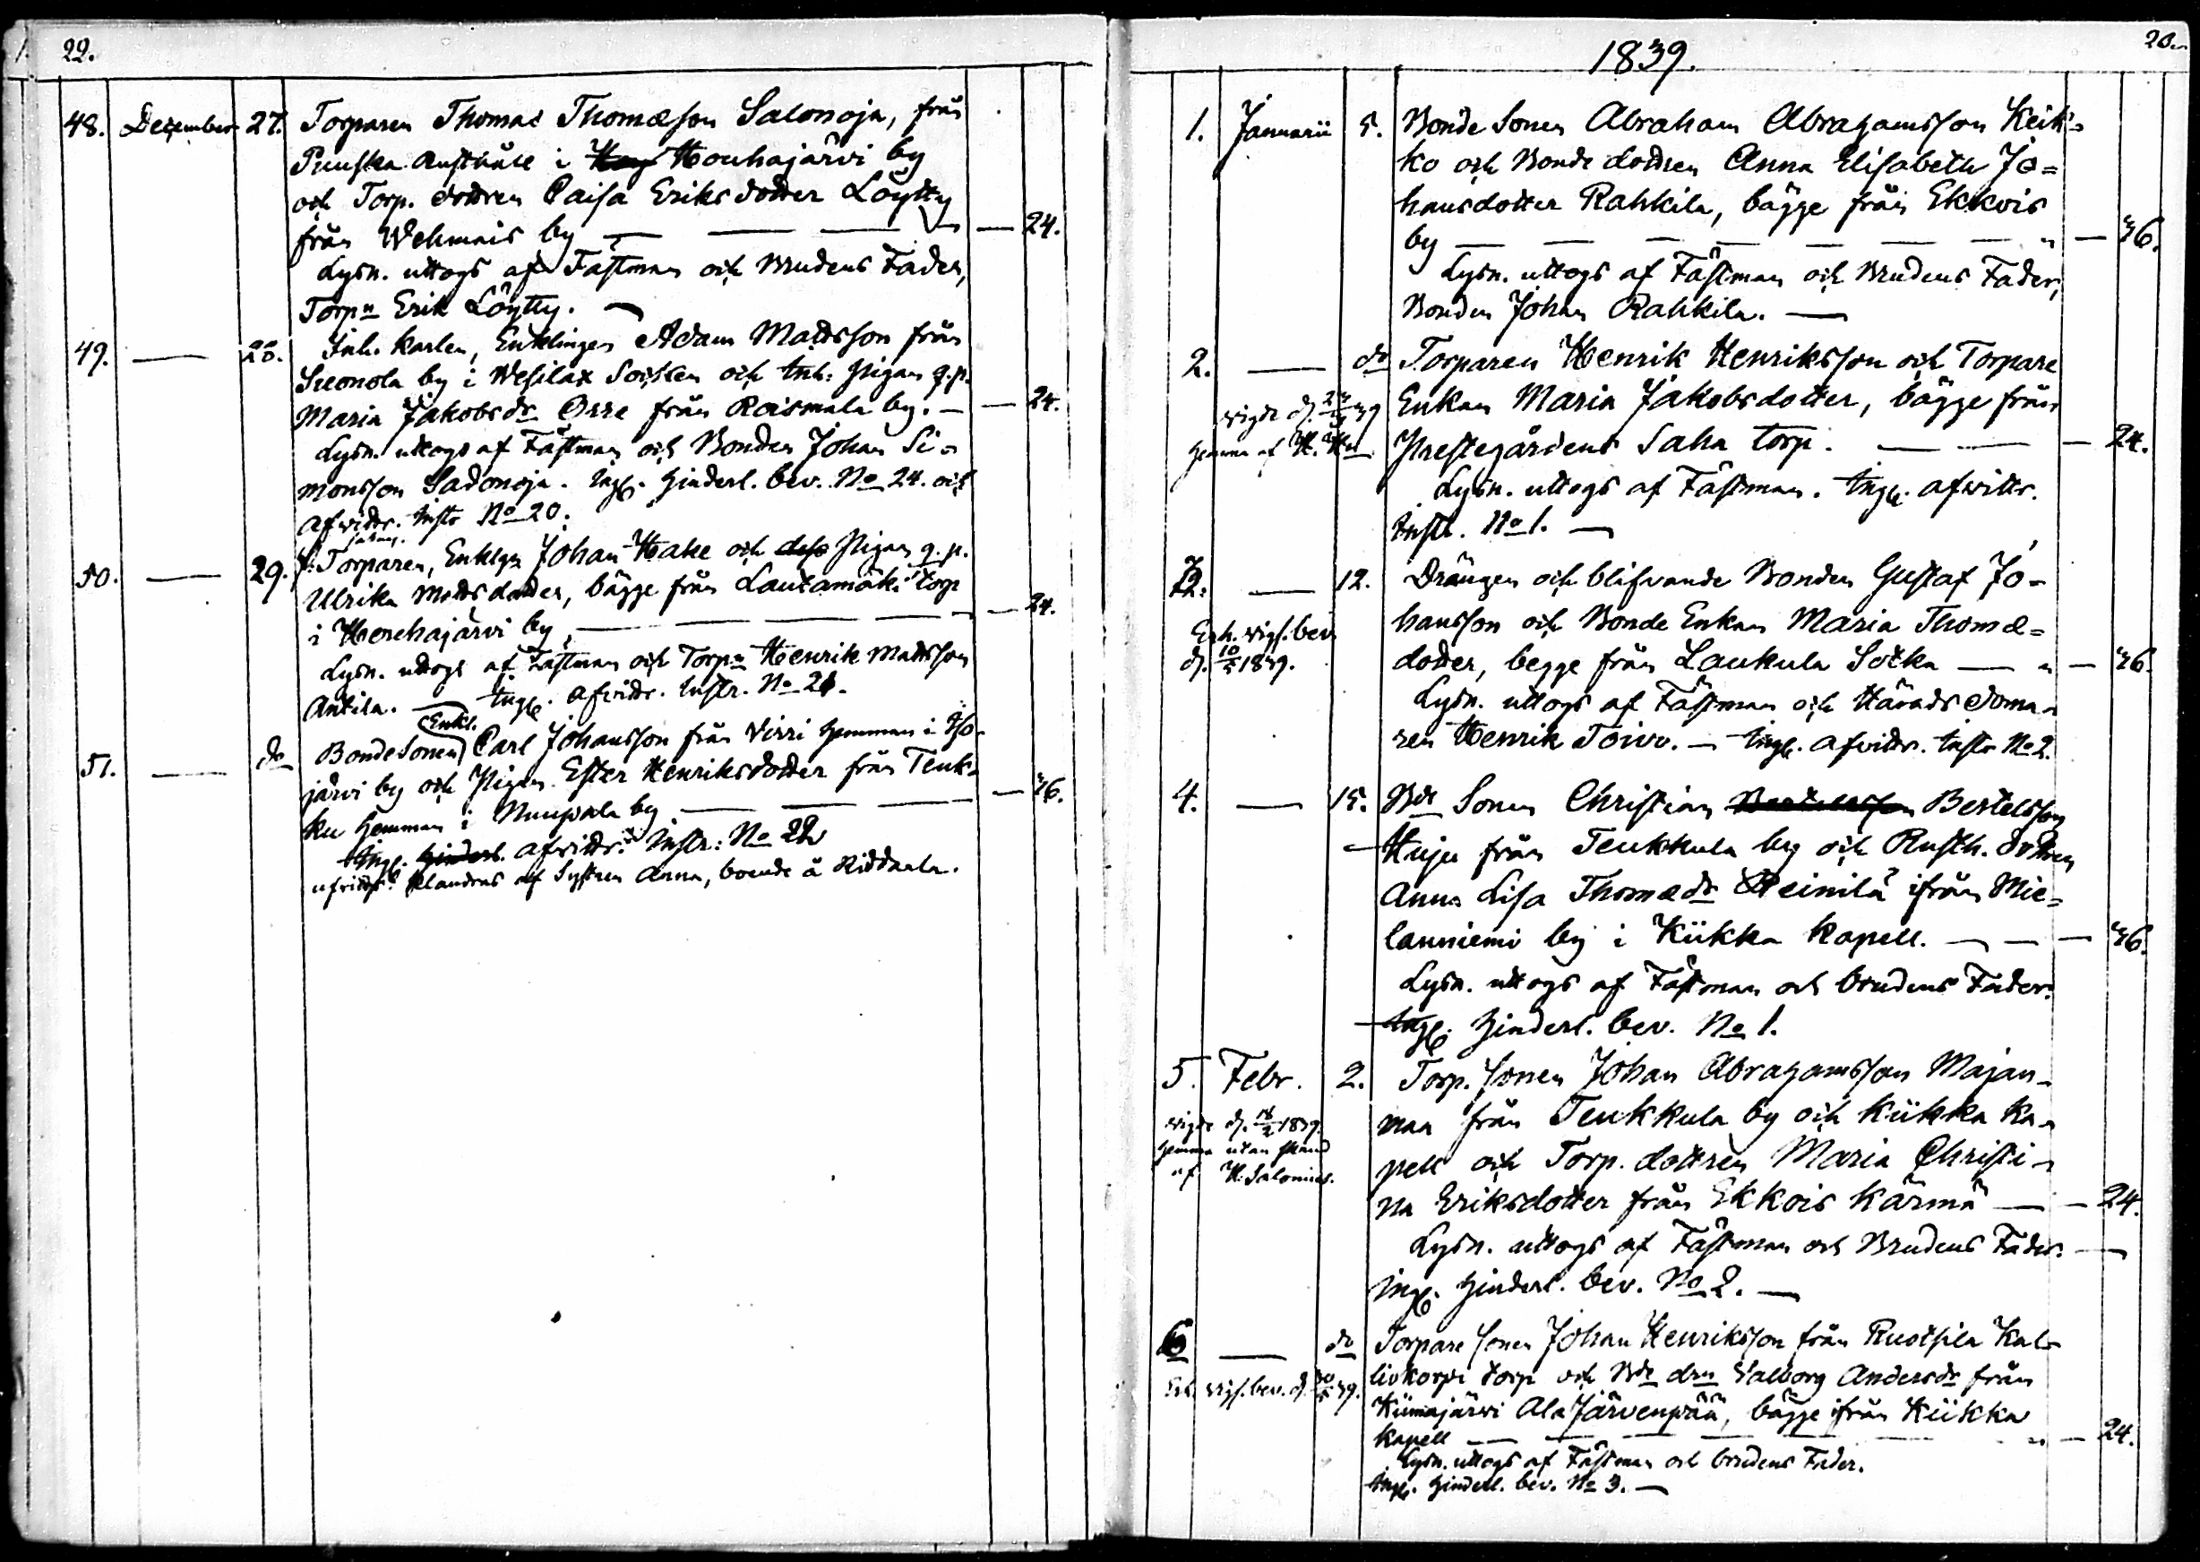 22.
48. Dezember 27. Torparen Thomas Thomæson Salonoja, från
Punska Rusthåll i Houhajärvi by
och Torp. dottren Caisa Eriksdotter Löytty
från Wehmais by — — — — 24.
Lysn. uttogs af Fästman och Brudens Fader,
Torpn Erik Löytty. —
49. — 28. Inh. karlen, Enklingen Adam Mattsson från
Sreonola by i Wesilax Socken och Inh. Pigan q.p.
Maria Jakobsdr Orre från Roismala by. — — 24.
Lysn. uttogs af Fästman och Bonden Johan Si-
monsson Sadonoja. Ingl. Hinderl. bev. No 24. och
afwittr. Instr No 20.
50. — 29. f: Torparen, Enklgn Johan Hake och dess Pigan q.p.
Ulrika Mattsdotter, bägge från Lautamäki torp
i Horehajärvi by, — — — — 24.
Lysn. uttogs af Fästman och Torpn Henrik Mattsson
Antila. — Ingl. afwittr. Instr. No 21.
51. — do BondeSonen (Enkl.) Carl Johansson från Virri Hemman i Ho-
järvi by och Pigan Ester Henriksdotter från Teuk-
ku Hemman i Nuupala by — — — — 36.
Ingl. Hinderl. afwittr. Instr: No 22
af Systren Anna, boende å Riddaala.
1839. 23.
1. Januarii 5. Bonde Sonen Abraham Abrahamsson Keik-
ko och Bonde dottren Anna Elisabeth Jo=
hansdotter Rahkila, bägge från Ekkois
by — — — — — — " — 36.
Lysn. uttogs af Fästman och Brudens Fader,
Bonden Johan Rahkila. —
2. — do Torparen Henrik Henriksson och Torpare
Enkan Maria Jakobsdotter, bägge från
Prestegårdens Saha torp. — — — 24.
Lysn. uttogs af Fästman. Ingl. afwittr.
Instr. No 1. —
3. — 12. Drängen och blifvande Bonden Gustaf Jo-
hansson och Bonde Enkan Maria Thomæ=
dotter, begge från Laukula Sotka — " — 36.
Erh. vigs. bev.
d. 10/2 1839.
Lysn. uttogs af Fästman och Härads doma-
ren Henrik Toivo. — Ingl. afwittr. Instr No 2.
4. — 15. Bde Sonen Christian Bertelsson Bertelsson
Huju från Teukkula by och Rusth. dottren
Anna Lisa Thomædr Heinilä ifrån Mie=
lanniemi by i Kiikka Kapell. — — — 36.
Lysn. uttogs af Fästman och brudens Fader.
Ingl. Hinderl. bev. No 1.
5. Febr. 2. Torp. Sonen Johan Abrahamsson Majan-
maa från Teukkula by och Kiikka Ka-
pell och Torp. dottren Maria Christi-
na Eriksdotter från Ekkois Kärmä — — 24.
wigde d. 14/2 1839.
Hemma utan skaud
af H. Salonius.
Lysn. uttogs af Fästman och Brudens Fader. —
Ingl. Hinderl. bev. No 2. —
6 — do Torpare Sonen Johan Henriksson från Ruotsila Kal-
liokorpi torp och Bde drn Valborg Andersdr från
Kiimajärvi Ala Järvenpää, bägge ifrån Kiikka
Kapell — — — — — — " — 24.
Erh. vigs. bev. d. 39.
Lysn. uttogs af Fästman och brudens Fader.
Ingl. Hinderl. bev. No 3. —